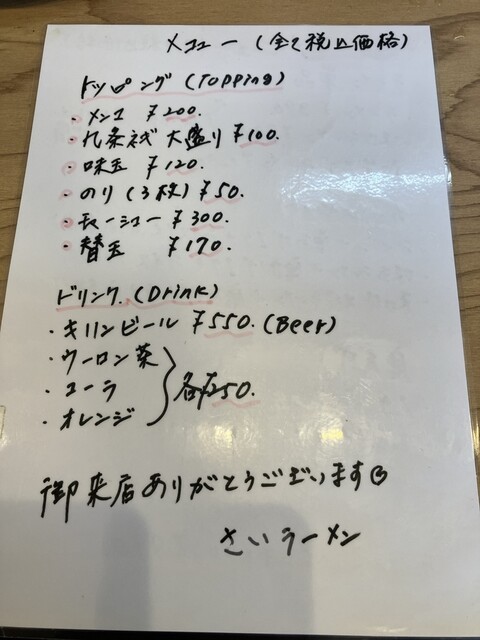 メニュー (全て税込価格)
トッピング (Topping)
・メンマ ¥200.
・九条ネギ 大盛り ¥100.
・味玉 ¥120.
・のり (3枚) ¥50.
・チャーシュー ¥300.
・替玉 ¥170.
ドリンク. (Drink)
・キリンビール ¥550. (Beer)
・ウーロン茶
・コーラ
・オレンジ
各¥250.
御来店ありがとうございます
さいラーメン